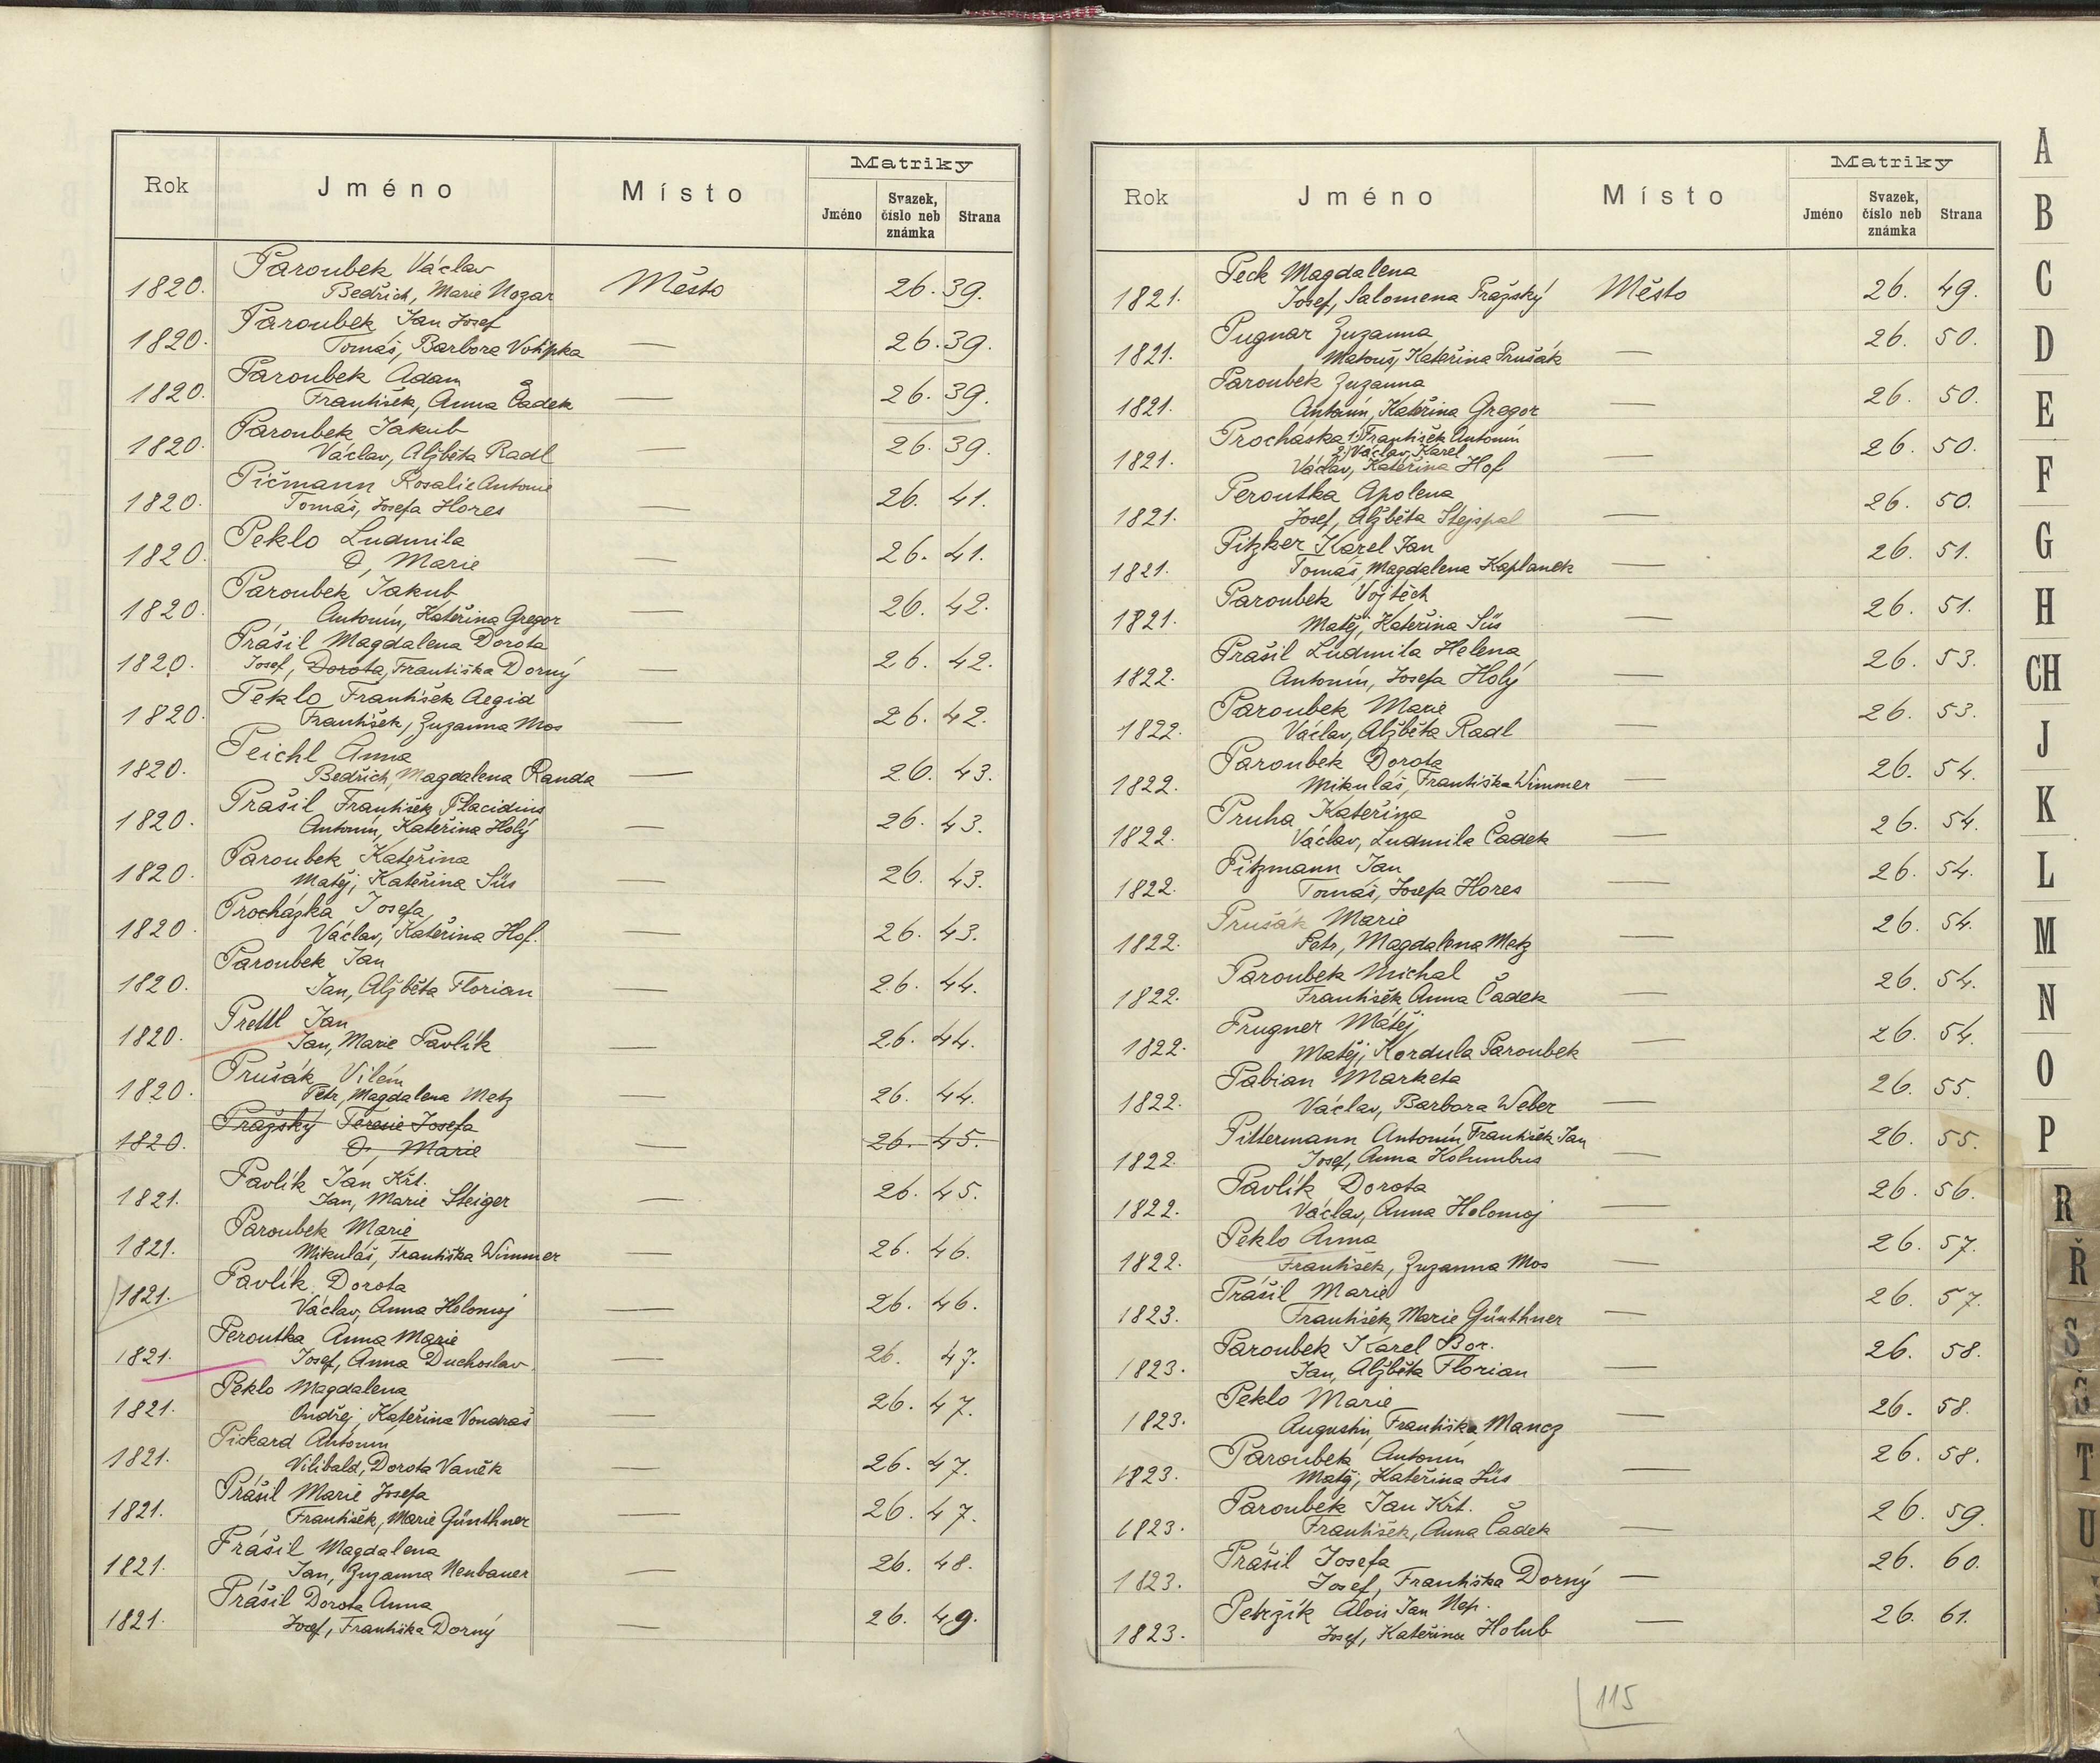 Rok Jméno Místo Matriky
Jméno Svazek, číslo neb známka Strana
Paroubek Václav
1820. Bedřich, Marie Nozar Město 26. 39.
Paroubek Jan Josef
1820. Tomáš, Barbora Votipka — 26. 39.
Paroubek Adam
1820. František, Anna Čadek — 26. 39.
Paroubek Jakub
1820. Václav, Alžběta Radl — 26. 39.
Pičmann Rosalie Antonie
1820. Tomáš, Josefa Hores — 26. 41.
Peklo Ludmila
1820. O, Marie — 26. 41.
Paroubek Jakub
1820. Antonín, Kateřina Gregor — 26. 42.
Prášil Magdalena Dorota
1820. Josef, Dorota, Františka Dorný — 26. 42.
Peklo František Aegid
1820. František, Zuzanna Mos — 26. 42.
Peichl Anna
1820. Bedřich, Magdalena Randa — 26. 43.
Prašil František Placidius
1820. Antonín, Kateřina Holý — 26. 43.
Paroubek Kateřina
1820. Matěj, Kateřina Süs — 26. 43.
Procházka Josefa
1820. Václav, Kateřina Hof. — 26. 43.
Paroubek Jan
1820. Jan, Alžběta Florian — 26. 44.
Prettl Jan
1820. Jan, Marie Pavlík — 26. 44.
Prušák Vilém
1820. Petr, Magdalena Metz — 26. 44.
Pražský Teresie Josefa
1820. O, Marie 26. 45.
Pavlík Jan Křt.
1821. Jan, Marie Steiger — 26. 45.
Paroubek Marie
1821. Mikuláš, Františka Wimmer — 26. 46.
Pavlík Dorota
1821. Václav, Anna Holomoj — 26. 46.
Peroutka Anna Marie
1821. Josef, Anna Duchoslav. — 26. 47.
Peklo Magdalena
1821. Ondřej, Kateřina Vondraš — 26. 47.
Pickard Antonín
1821. Vilibald, Dorota Vaněk — 26. 47.
Prášil Marie Josefa
1821. František, Marie Günthner — 26. 47.
Prášil Magdalena
1821. Jan, Zuzanna Neubauer — 26. 48.
Prášil Dorota Anna
1821. Josef, Františka Dorný — 26. 49.
Rok Jméno Místo Matriky
Jméno Svazek, číslo neb známka Strana
Peck Magdalena
1821. Josef, Salomena Pražský Město 26. 49.
Pugnar Zuzanna
1821. Matouš, Kateřina Prušák — 26. 50.
Paroubek Zuzanna
1821. Antonín, Kateřina Gregor — 26. 50.
Procháska 1.) František Antonín
2.) Václav Karel
1821. Václav, Kateřina Hof — 26. 50.
Peroutka Apolena
1821. Josef, Alžběta Stejspal — 26. 50.
Pitzker Karel Jan
1821. Tomáš, Magdalena Kaplanek — 26. 51.
Paroubek Vojtěch
1821. Matěj, Kateřina Süs — 26. 51.
Prašil Ludmila Helena
1822. Antonín, Josefa Holý — 26. 53.
Paroubek Marie
1822. Václav, Alžběta Radl — 26. 53.
Paroubek Dorota
1822. Mikuláš, Františka Wimmer — 26. 54.
Pruha Kateřina
1822. Václav, Ludmila Čadek — 26. 54.
Pitzmann Jan
1822. Tomáš, Josefa Hores — 26. 54.
Prušák Marie
1822. Petr, Magdalena Metz — 26. 54.
Paroubek Michal
1822. František, Anna Čadek — 26. 54.
Prugner Matěj
1822. Matěj, Kordula Paroubek — 26. 54.
Pabian Marketa
1822. Václav, Barbora Weber — 26. 55.
Pittermann Antonín František Jan
1822. Josef, Anna Kolumbus — 26. 55.
Pavlík Dorota
1822. Václav, Anna Holomoj — 26. 56.
Peklo Anna
1822. František, Zuzanna Mos — 26. 57.
Prášil Marie
1823. František, Marie Günthner — 26. 57.
Paroubek Karel Bor.
1823. Jan, Alžběta Florian — 26. 58.
Peklo Marie
1823. Augustin, Františka Mancz — 26. 58.
Paroubek Antonín
1823. Matěj, Kateřina Süs — 26. 58.
Paroubek Jan Křt.
1823. František, Anna Čadek — 26. 59.
Prášil Josefa
1823. Josef, Františka Dorný — 26. 60.
Petržík Alois Jan Nep.
1823. Josef, Kateřina Holub — 26. 61.
115
A
B
C
D
E
F
G
H
CH
J
K
L
M
N
O
P
R
Ř
S
T
U